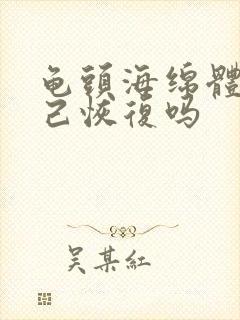 龟頭海绵體
己恢復吗
吴某紅